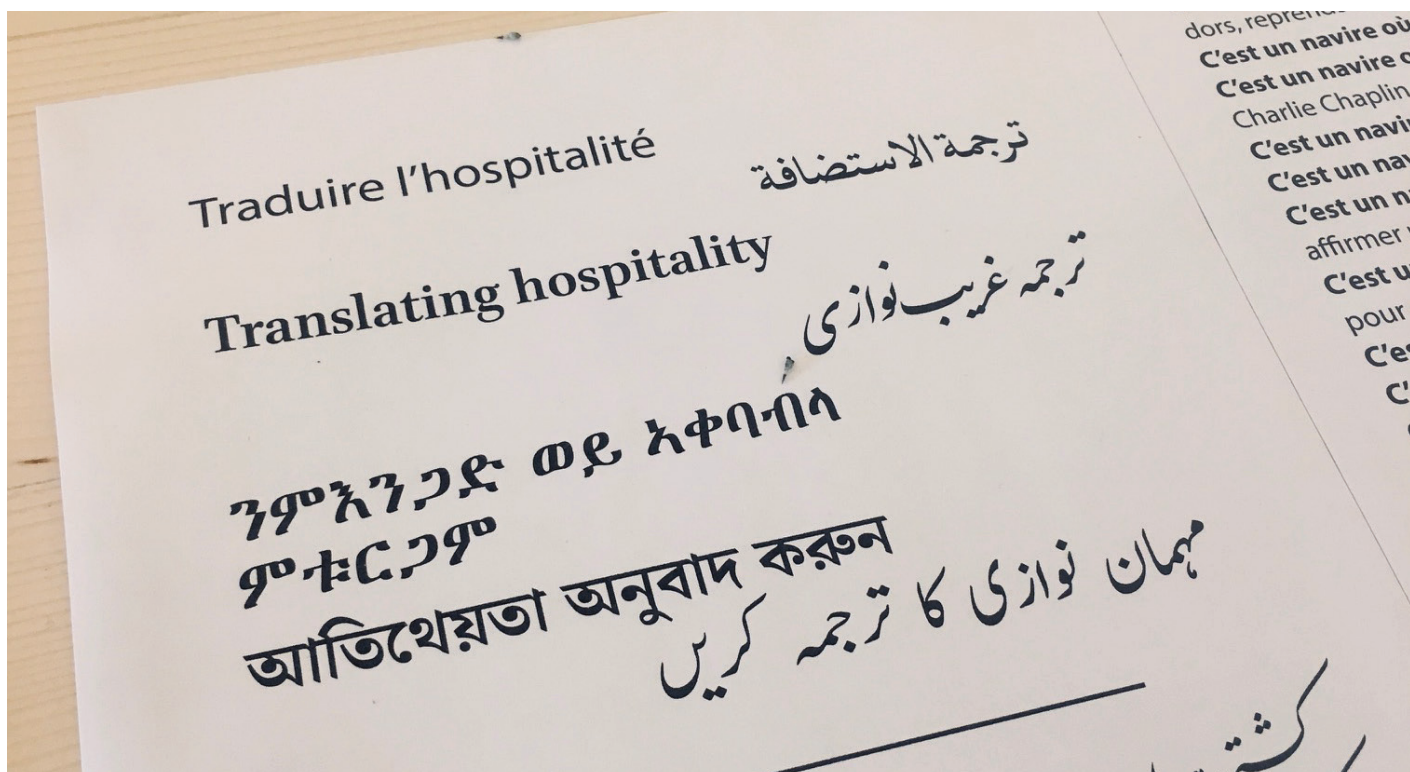 Traduire l'hospitalité
ترجمة الاستضافة
Translating hospitality
ترجمہ غریب نوازی
ንምእንጋድ ወይ አቀባብላ
ምቱርጋም
আতিথেয়তা অনুবাদ করুন
مہمان نوازی کا ترجمہ کریں
dors,
C'est un navire où
C'est un navire
Charlie Chaplin
C'est un
C'est un
C'est un
affirmer
C'est
pour